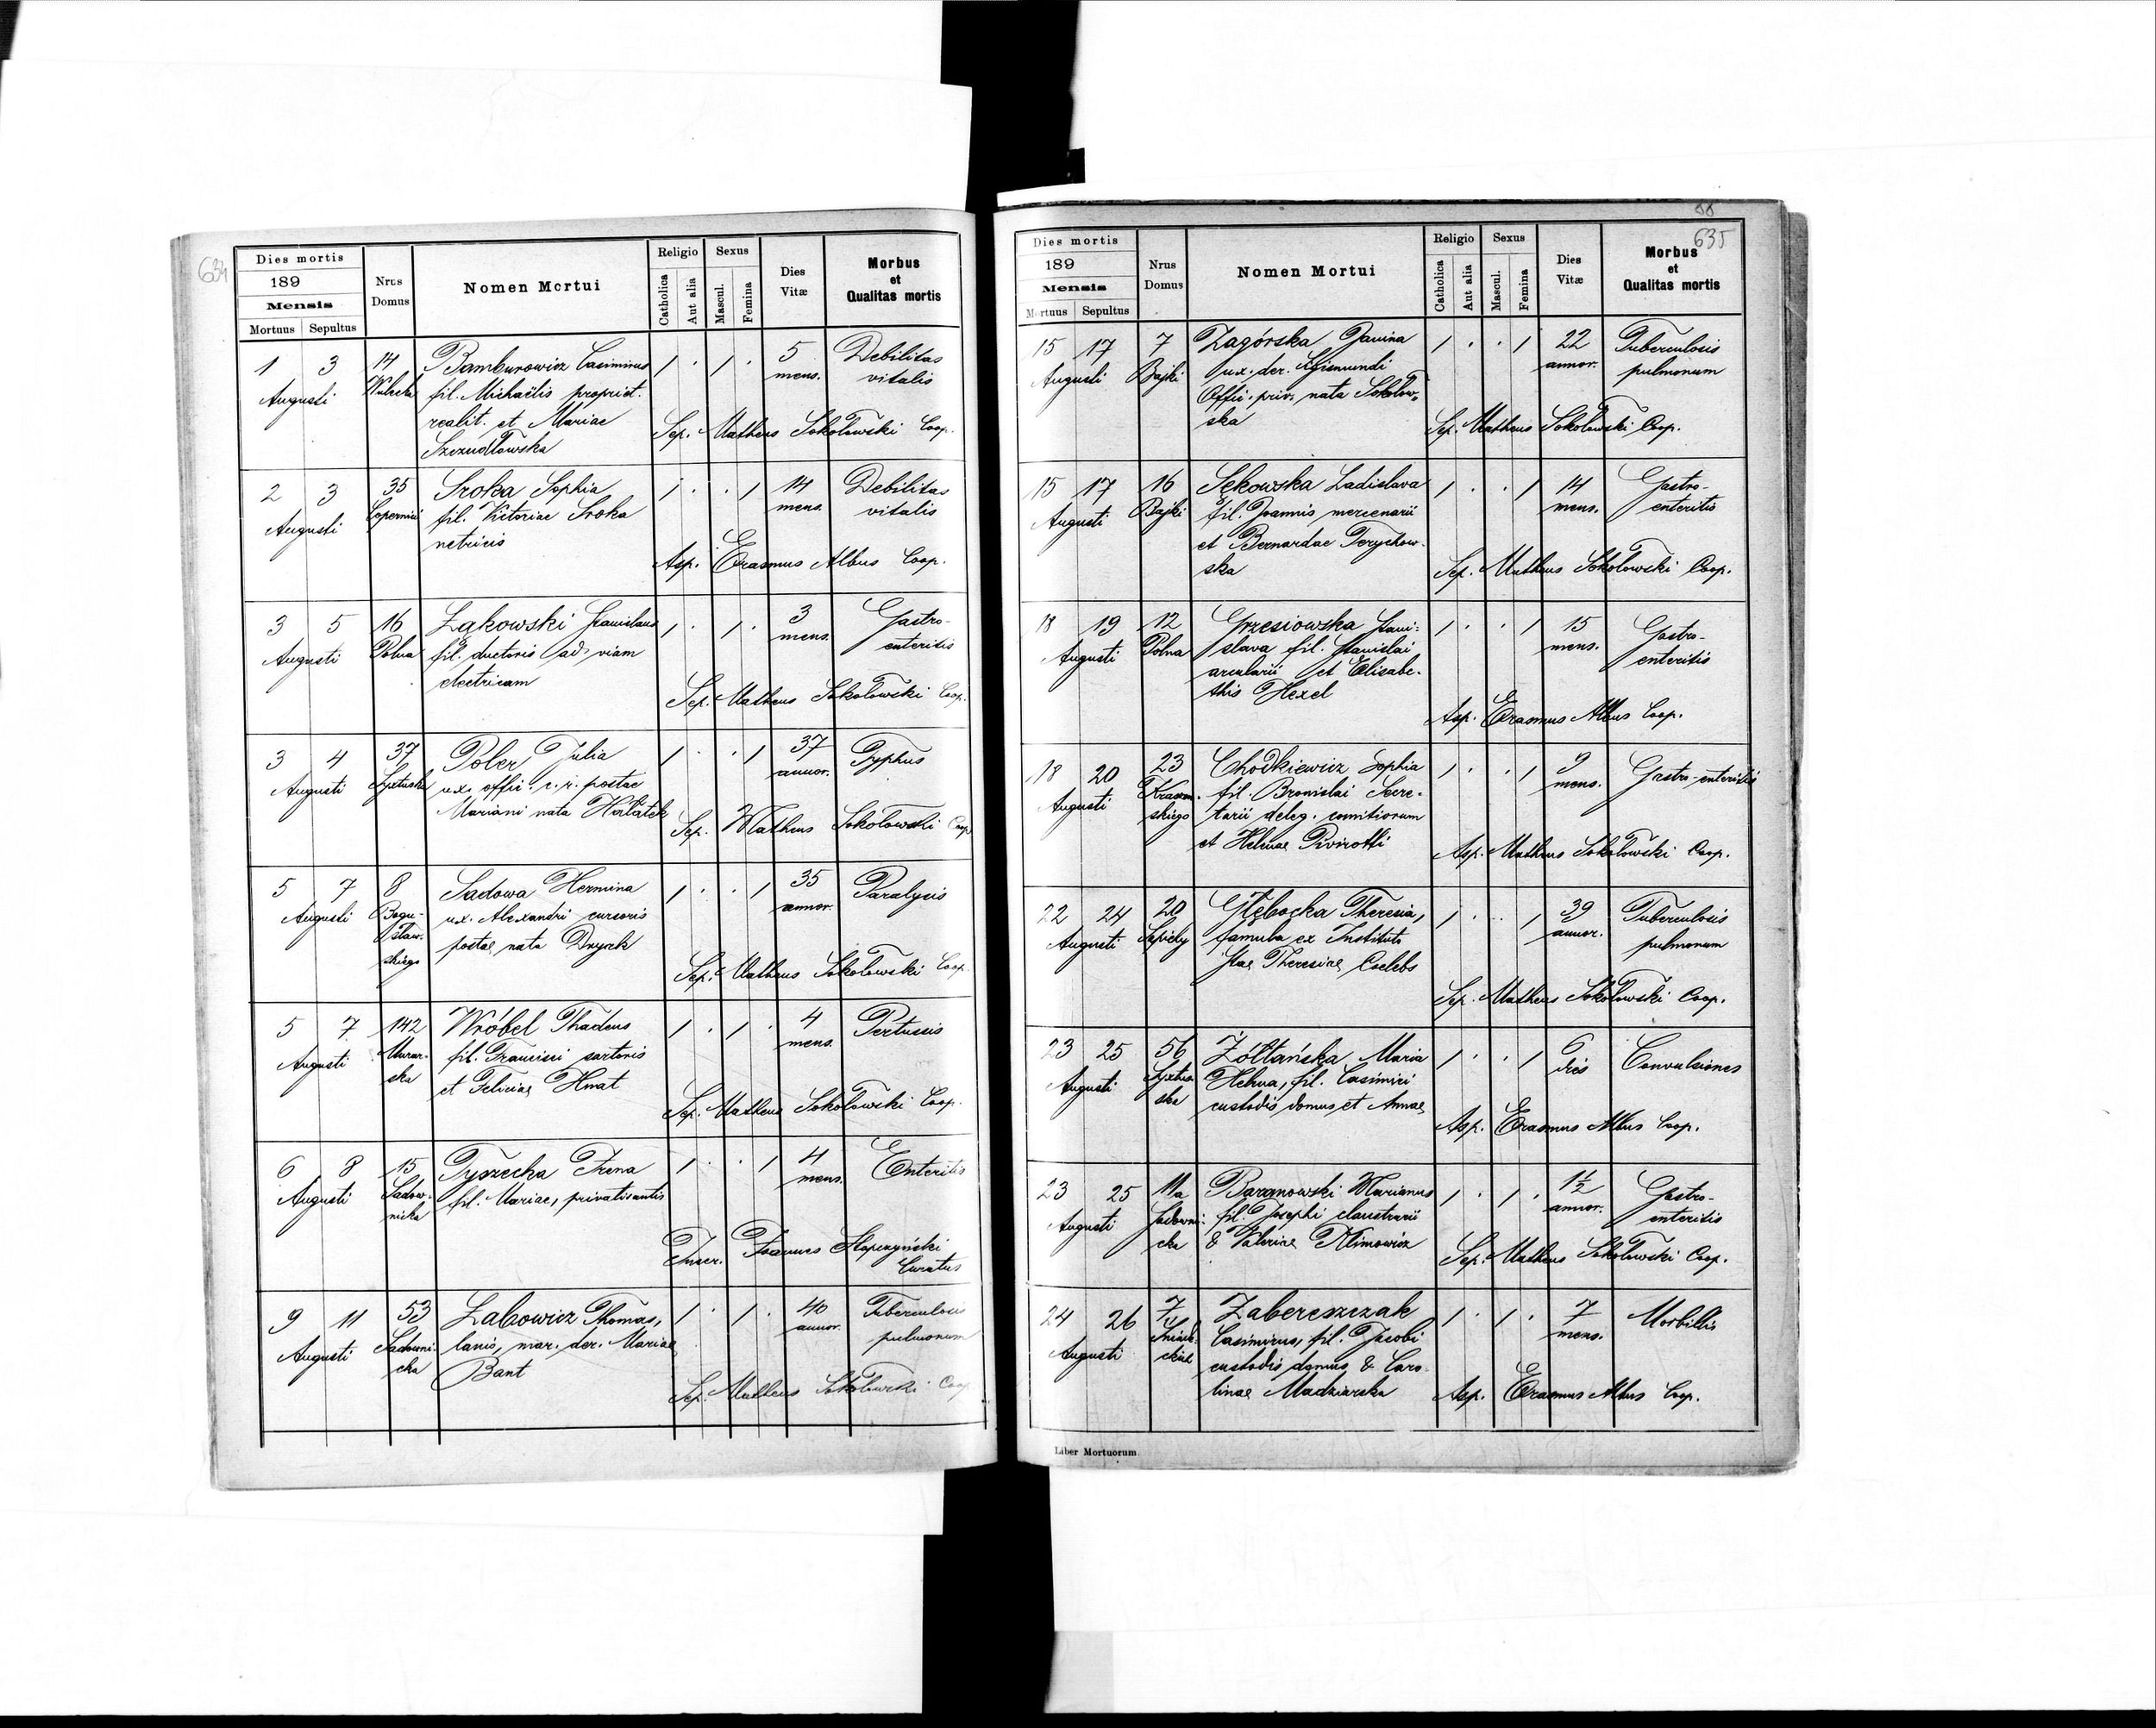 634
Dies mortis
189
Mensis
Mortuus Sepultus
Nrus Domus
Nomen Mortui
Religio
Catholica
Aut alia
Sexus
Mascul.
Femina
Dies Vitæ
Morbus et Qualitas mortis
1 3 14 Bamburowicz Casimirus 1 . 1 . 5 Debilitas
Augusti Wulecka fil. Michaëlis propriet. mens. vitalis
realit. et Mariae Sep. Matheus Sokołowski Coop.
Szczudłowska
2 3 35 Sroka Sophia 1 . . 1 14 Debilitas
Augusti Copernici fil. Victoriae Sroka mens. vitalis
netricis Asp. Erasmus Albus Coop.
3 5 16 Żakowski Stanislaus 1 . 1 . 3 Gastro-
Augusti Polna fil. ductoris ad viam mens. enteritis
electricam Sep. Matheus Sokołowski Coop.
3 4 37 Poler Julia 1 . . 1 37 Typhus
Augusti Syxtuska ux. offic. c. r. postae annor.
Mariani nata Hałatek Sep. Matheus Sokołowski Coop
5 7 8 Sadowa Hermina 1 . . 1 35 Paralysis
Augusti Bogu- ux. Alexandri cursoris annor.
sław- postae nata
skiego Sep. Matheus Sokołowski Coop.
5 7 142 Wróbel Thadeus 1 . 1 . 4 Pertussis
Augusti Murar- fil. Francisci sartoris mens.
ska et Feliciae Hnat Sep. Matheus Sokołowski Coop.
6 8 15 Tyszecka Irena 1 . . 1 4 Enteritis
Augusti Sadow- fil. Mariae, privatisantis mens.
nicka
Inscr. Joannes Curatus
9 11 53 Żabowicz Thomas, 1 . 1 . 40 Tuberculosis
Augusti Sadowni- lanio, mar. der. Mariae annor. pulmonum
cka Bant Sep. Matheus Sokołowski Coop
635
Dies mortis
189
Mensis
Mortuus Sepultus
Nrus Domus
Nomen Mortui
Religio
Catholica
Aut alia
Sexus
Mascul.
Femina
Dies Vitæ
Morbus et Qualitas mortis
15 17 7 Zagórska Janina 1 . . 1 22 Tuberculosis
Augusti Bajki ux. der. Sigismundi annor. pulmonum
Offic. priv. nata Sokołow-
ska Sep. Matheus Sokołowski Coop.
15 17 16 Sękowska Ladislava 1 . . 1 14 Gastro-
Augusti Bajki fil. Joannis mercenarii mens. enteritis
et Bernardae Terychow-
ska Sep. Matheus Sokołowski Coop.
18 19 12 Grzesiowska Stani- 1 . . 1 15 Gastro-
Augusti Polna slava fil. Stanislai mens. enteritis
arcularii et Elisabe-
this Hexel Asp. Erasmus Albus Coop.
18 20 23 Chodkiewicz Sophia 1 . . 1 9 Gastro-enteritis
Augusti fil. Bronislai Secre- mens.
skiego tarii deleg. comitiorum
et Helenae Pivirotti Asp. Matheus Sokołowski Coop.
22 24 20 Głębocka Theresia, 1 . . 1 39 Tuberculosis
Augusti Sapiehy famula ex Instituto annor. pulmonum
Stae Theresiae, Coelebs
Sep. Matheus Sokołowski Coop.
23 25 56 Żółtańska Maria 1 . . 1 6 Convulsiones
Augusti Syxtu- Helena, fil. Casimiri dies
ska custodis domus et Annae
Asp. Erasmus Albus Coop.
23 25 11a Baranowski Marianus 1 . 1 . 1½ Gastro-
Augusti Sadowni- fil. Josephi claustrarii annor. enteritis
cka & Valeriae Klimowicz Sep. Matheus Sokołowski Coop.
24 26 7 Zabereszczak 1 . 1 . 7 Morbillis
Augusti Casimirus, fil. Jacobi mens.
custodis domus & Caro-
linae Madziarska Asp. Erasmus Albus Coop.
Liber Mortuorum